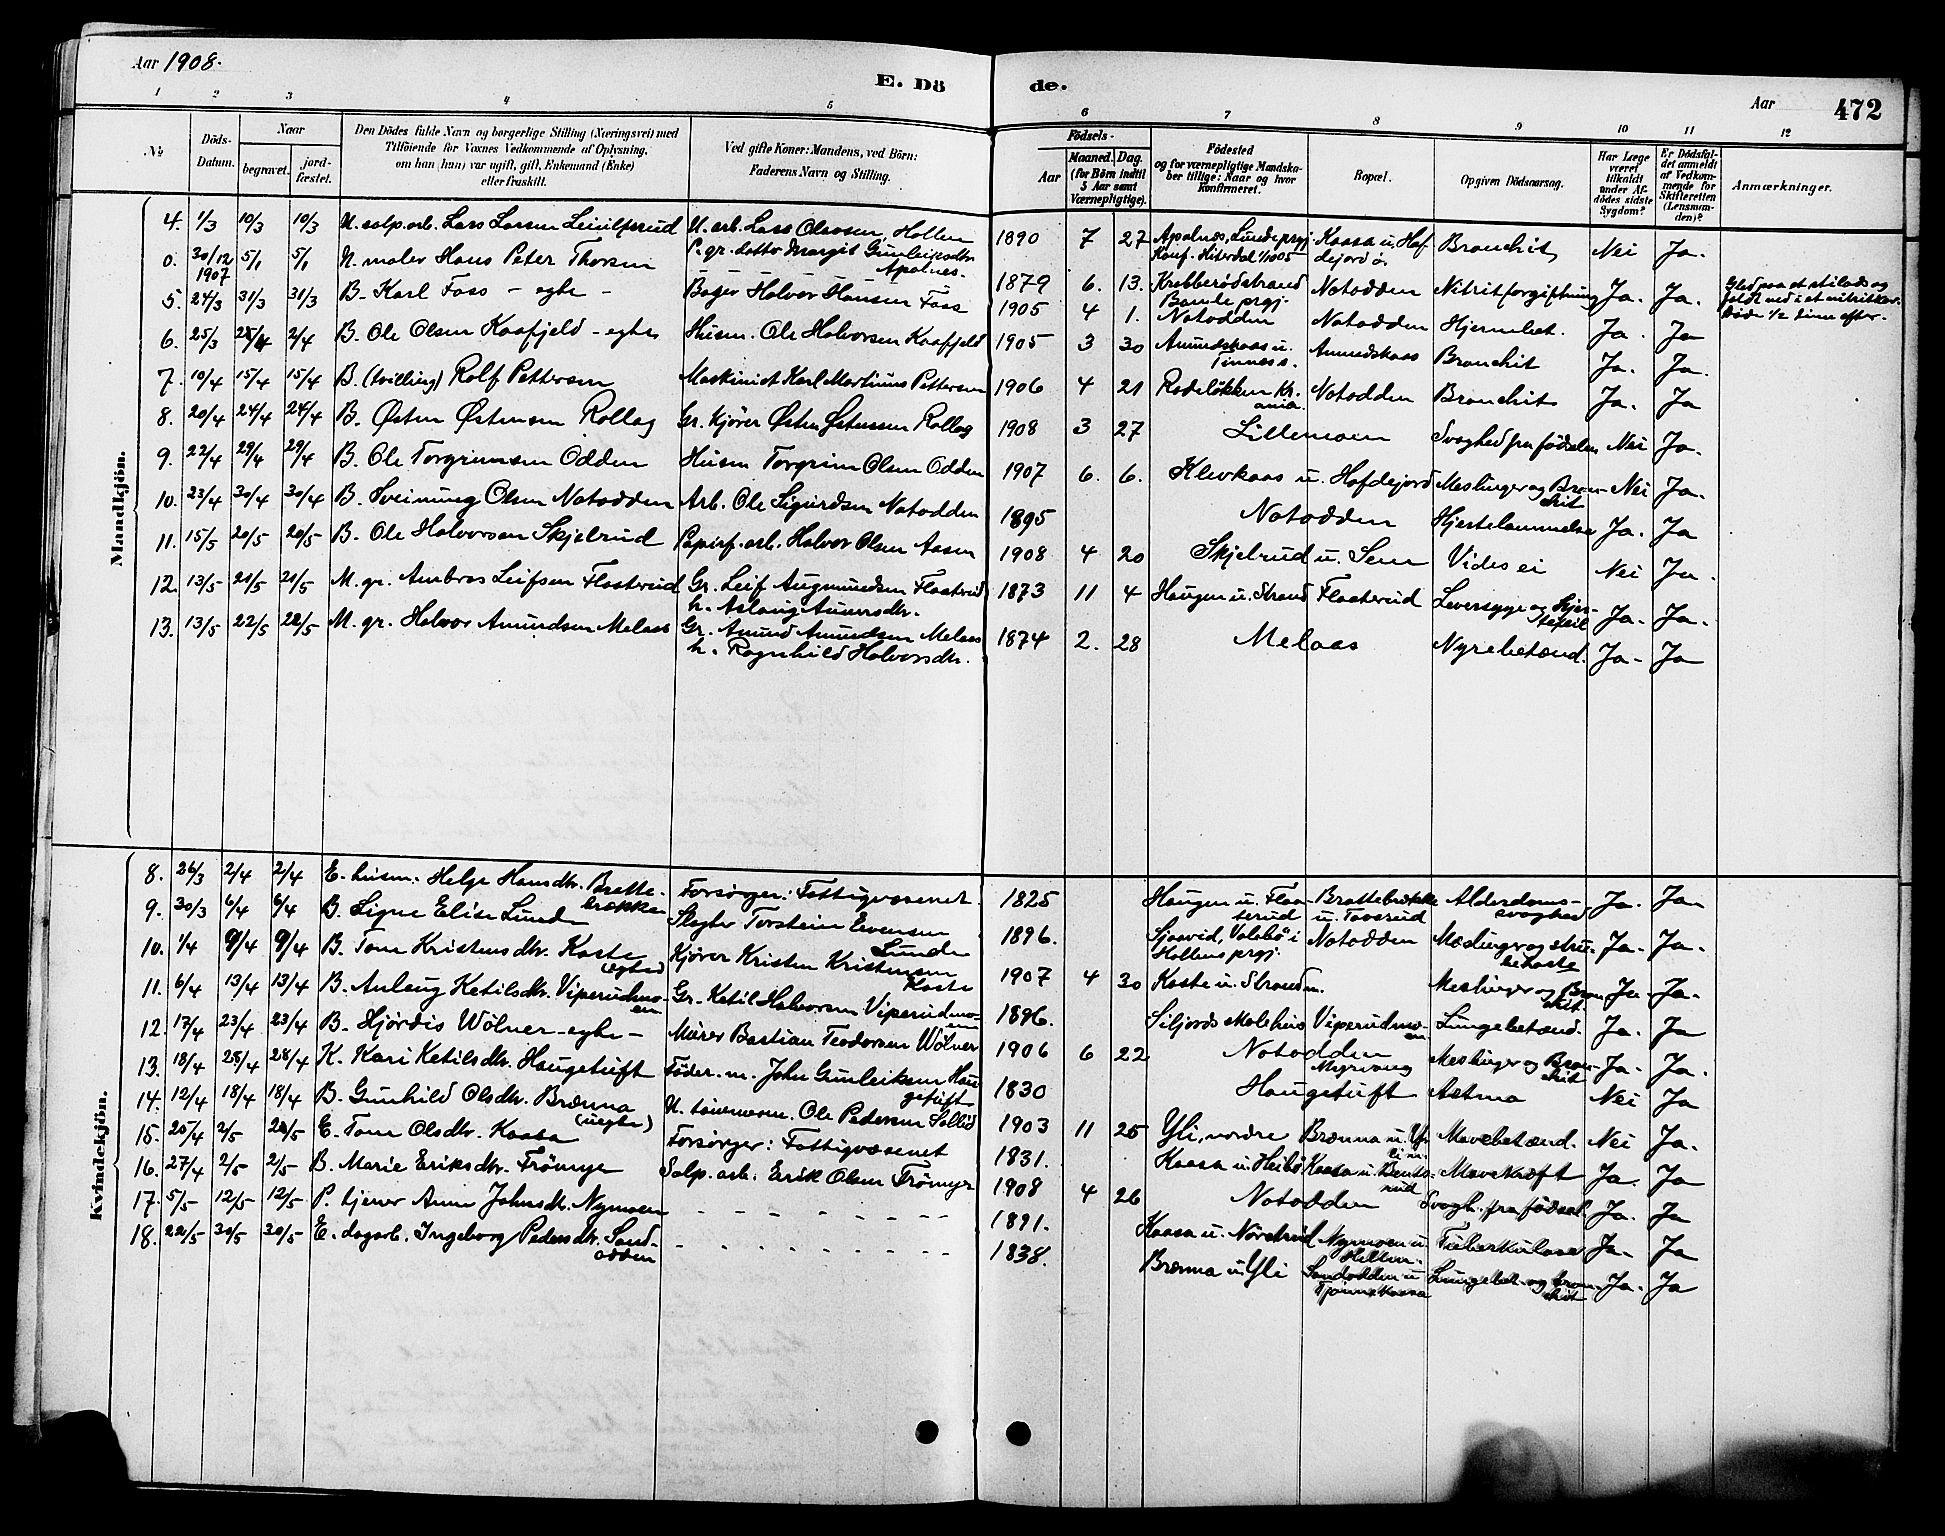 Aar 1908.
E. Dö de.
Aar 472
1 2 3 4 5 6 7 8 9 10 11 12
No
Döds-Datum.
Naar
begravet.
jord-fæstet.
Den Dödes fulde Navn og borgerlige Stilling (Næringsvei) med
Tilföiende for Voxnes Vedkommende af Oplysning,
om han (hun) var ugift, gift, Enkemand (Enke)
eller fraskilt.
Ved gifte Koner: Mandens, ved Börn:
Faderens Navn og Stilling.
Födsels-
Aar
Maaned. Dag.
(for Börn indtil
5 Aar samt
Værnepligtige).
Födested
og for værnepligtige Mandska-
ber tillige: Naar og hvor
konfirmeret.
Bopæl.
Opgiven Dödsaarsag.
Har Læge
været
tilkaldt
under Af-
dödes sidste
Sygdom?
Er Dödsfal-
det anmeldt
af Vedkom-
mende for
Skifteretten
(Lensman-
den)?
Anmærkninger.
Mandkjön.
4. 1/3 10/3 10/3 U. salp.arb. Lars Larsen U. arb. Lars Olavsen, Hollen 1890 7 27 Apalnes, Lunde prgj. Kaasa u. Hafdejord ö. Bronchit Nei Ja.
0. 30/12 1907 5/1 5/1 U. maler Hans Peter Thorsen P. gr. datter Margit Gunleiksdtr. Apalnes. 1879 6. 13. Krabberødstrand Bamle prgj. Notodden Nitritforgiftning Ja. Ja. Gled paa et stilads og faldt ned i et nitritkar. Døde 1/2 time efter.
5. 24/3 31/3 31/3 B. Karl Foss - egte - Bager Halvor Hansen Foss 1905 4 1. Notodden Notodden Hjernebet. Ja. Ja
6. 25/3 2/4 B. Ole Olsen Kaafjeld - egte Husm. Ole Halvorsen Kaafjeld 1905 3 30 Amundskaas u. Tinnes s. Amundskaas Bronchit Ja. Ja.
7. 10/4 15/4 15/4 B. (tvilling) Rolf Pettersen Maskinist Karl Martinus Pettersen 1906 4 21 Rodeløkken Kr.ania. Notodden Bronchit Ja. Ja
8. 20/4 24/4 24/4 B. Østen Østensen Rollag Gr. Kjörer Østen Østensen Rollag 1908 3 27 Lillemoen Svaghed fra födselen Nei Ja.
9. 22/4 29/4 29/4 B. Ole Torgrimsen Odden Husm Torgrim Olsen Odden 1907 6. 6. Klevkaas u. Hafdejord Meslinger og Bronchit Nei Ja.
10. 23/4 30/4 30/4 B. Sveinung Olsen Notodden Arb. Ole Sigurdsen Notodden 1895 Notodden Hjertelammelse Ja. Ja
11. 15/5 20/5 20/5 B. Ole Halvorsen Skjelrud Papirf.arb. Halvor Olsen Aasen 1908 4 20 Skjelrud u. Sem Vides ei Nei Ja.
12. 13/5 21/5 21/5 M. gr. Ambros Leifsen Flaaterud Gr. Leif Augmundsen Flaaterud h. Aslaug 1873 11 4 Haugen u. Strand Flaaterud Leversyge og Hjertefeil Ja. Ja.
13. 13/5 22/5 22/5 M. gr. Halvor Amundsen Melaas Gr. Amund Amundsen Melaas h. Ragnhild Halvorsdtr. 1874 2. 28 Melaas Nyrebetænd. Ja - Ja
Kvindekjön.
8. 26/3 2/4 2/4 E. husm. Helge Hansdtr. Brattebrækken Forsörger: Fattigvæsenet 1825 Haugen u. Flaaterud Brattebrække u. Alderdomssvaghed Ja. Ja
9. 30/3 6/4 6/4 B. Signe Elise Lunde Slagter Torstein Evensen Lunde 1896. Valebö i Hollens prgj. Notodden Meslinger og strubehoste Ja. Ja.
10. 1/4 9/4 9/4 B. Tone Kristensdtr. Kaste egted Kjörer Kristen Kristensen Kaste 1907 4 30 Kaste u. Strand Meslinger og Bronchit. Ja. Ja.
11. 6/4 13/4 13/4 B. Aslaug Ketilsdtr. Viperudmoen Gr. Ketil Halvorsen Viperudmoen 1896. Siljords Viperudmoen Lungebetænd. Ja. Ja
12. 17/4 23/4 23/4 B. Hjördis Wölner - egte - Murer Bastian Teodorsen Wölner 1906 6 22 Notodden Meslinger og Bronchit Ja. Ja.
13. 18/4 28/4 28/4 K. Kari Ketilsdtr. Haugetuft Föder. m. John Gunleiksen Haugetuft 1830 Haugetuft Astma Nei Ja
14. 12/4 18/4 18/4 B. Gunhild Olsdtr. Brænna (uegte) U. tömmerm. Ole Pedersen Sollid 1903 11 25 Yli, nordre Brænna u. Yli n. Mavebetænd. Nei Ja.
15. 25/4 2/5 2/5 E. Tone Olsdtr. Kaasa Forsörger: Fattigvæsenet 1831. Kaasa u. Heibö Kaasa u. Mavekræft Ja. Ja
16. 27/4 2/5 2/5 B. Marie Eriksdtr. Frömyr Salp. arb. Erik Olsen Frömyr 1908 4 26 Notodden Svagh. fra födsel. Ja. Ja
17. 5/5 12/5 12/5 P. tjener Anne Johnsdtr. Nymoen - - - - - - - 1891. Kaasa u. Nymoen u. Tuberkulose Ja. Ja
18. 22/5 30/5 30/5 E. dagarb. Ingeborg Pedersdtr. Sandodden - - - - - - - 1838. Brænna u. Yli Sandodden u. Lungebet. og bronchit Ja. Ja